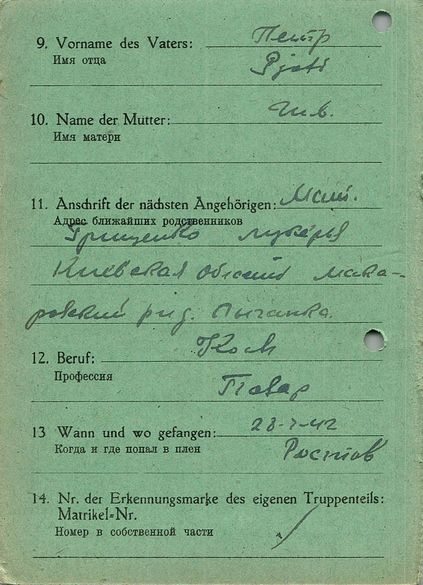 9. Vorname des Vaters: Петр
Имя отца Pjotr
10. Name der Mutter:
Имя матери
11. Anschrift der nächsten Angehörigen: Мат.
Адрес ближайших родственников
Грищенко Лукерья
Киевская область Мака-
ровский Лычанка
12. Beruf: Koch
Профессия Повар
13 Wann und wo gefangen: 28-7-42
Когда и где попал в плен Ростов
14. Nr. der Erkennungsmarke des eigenen Truppenteils:
Matrikel=Nr.
Номер в собственной части